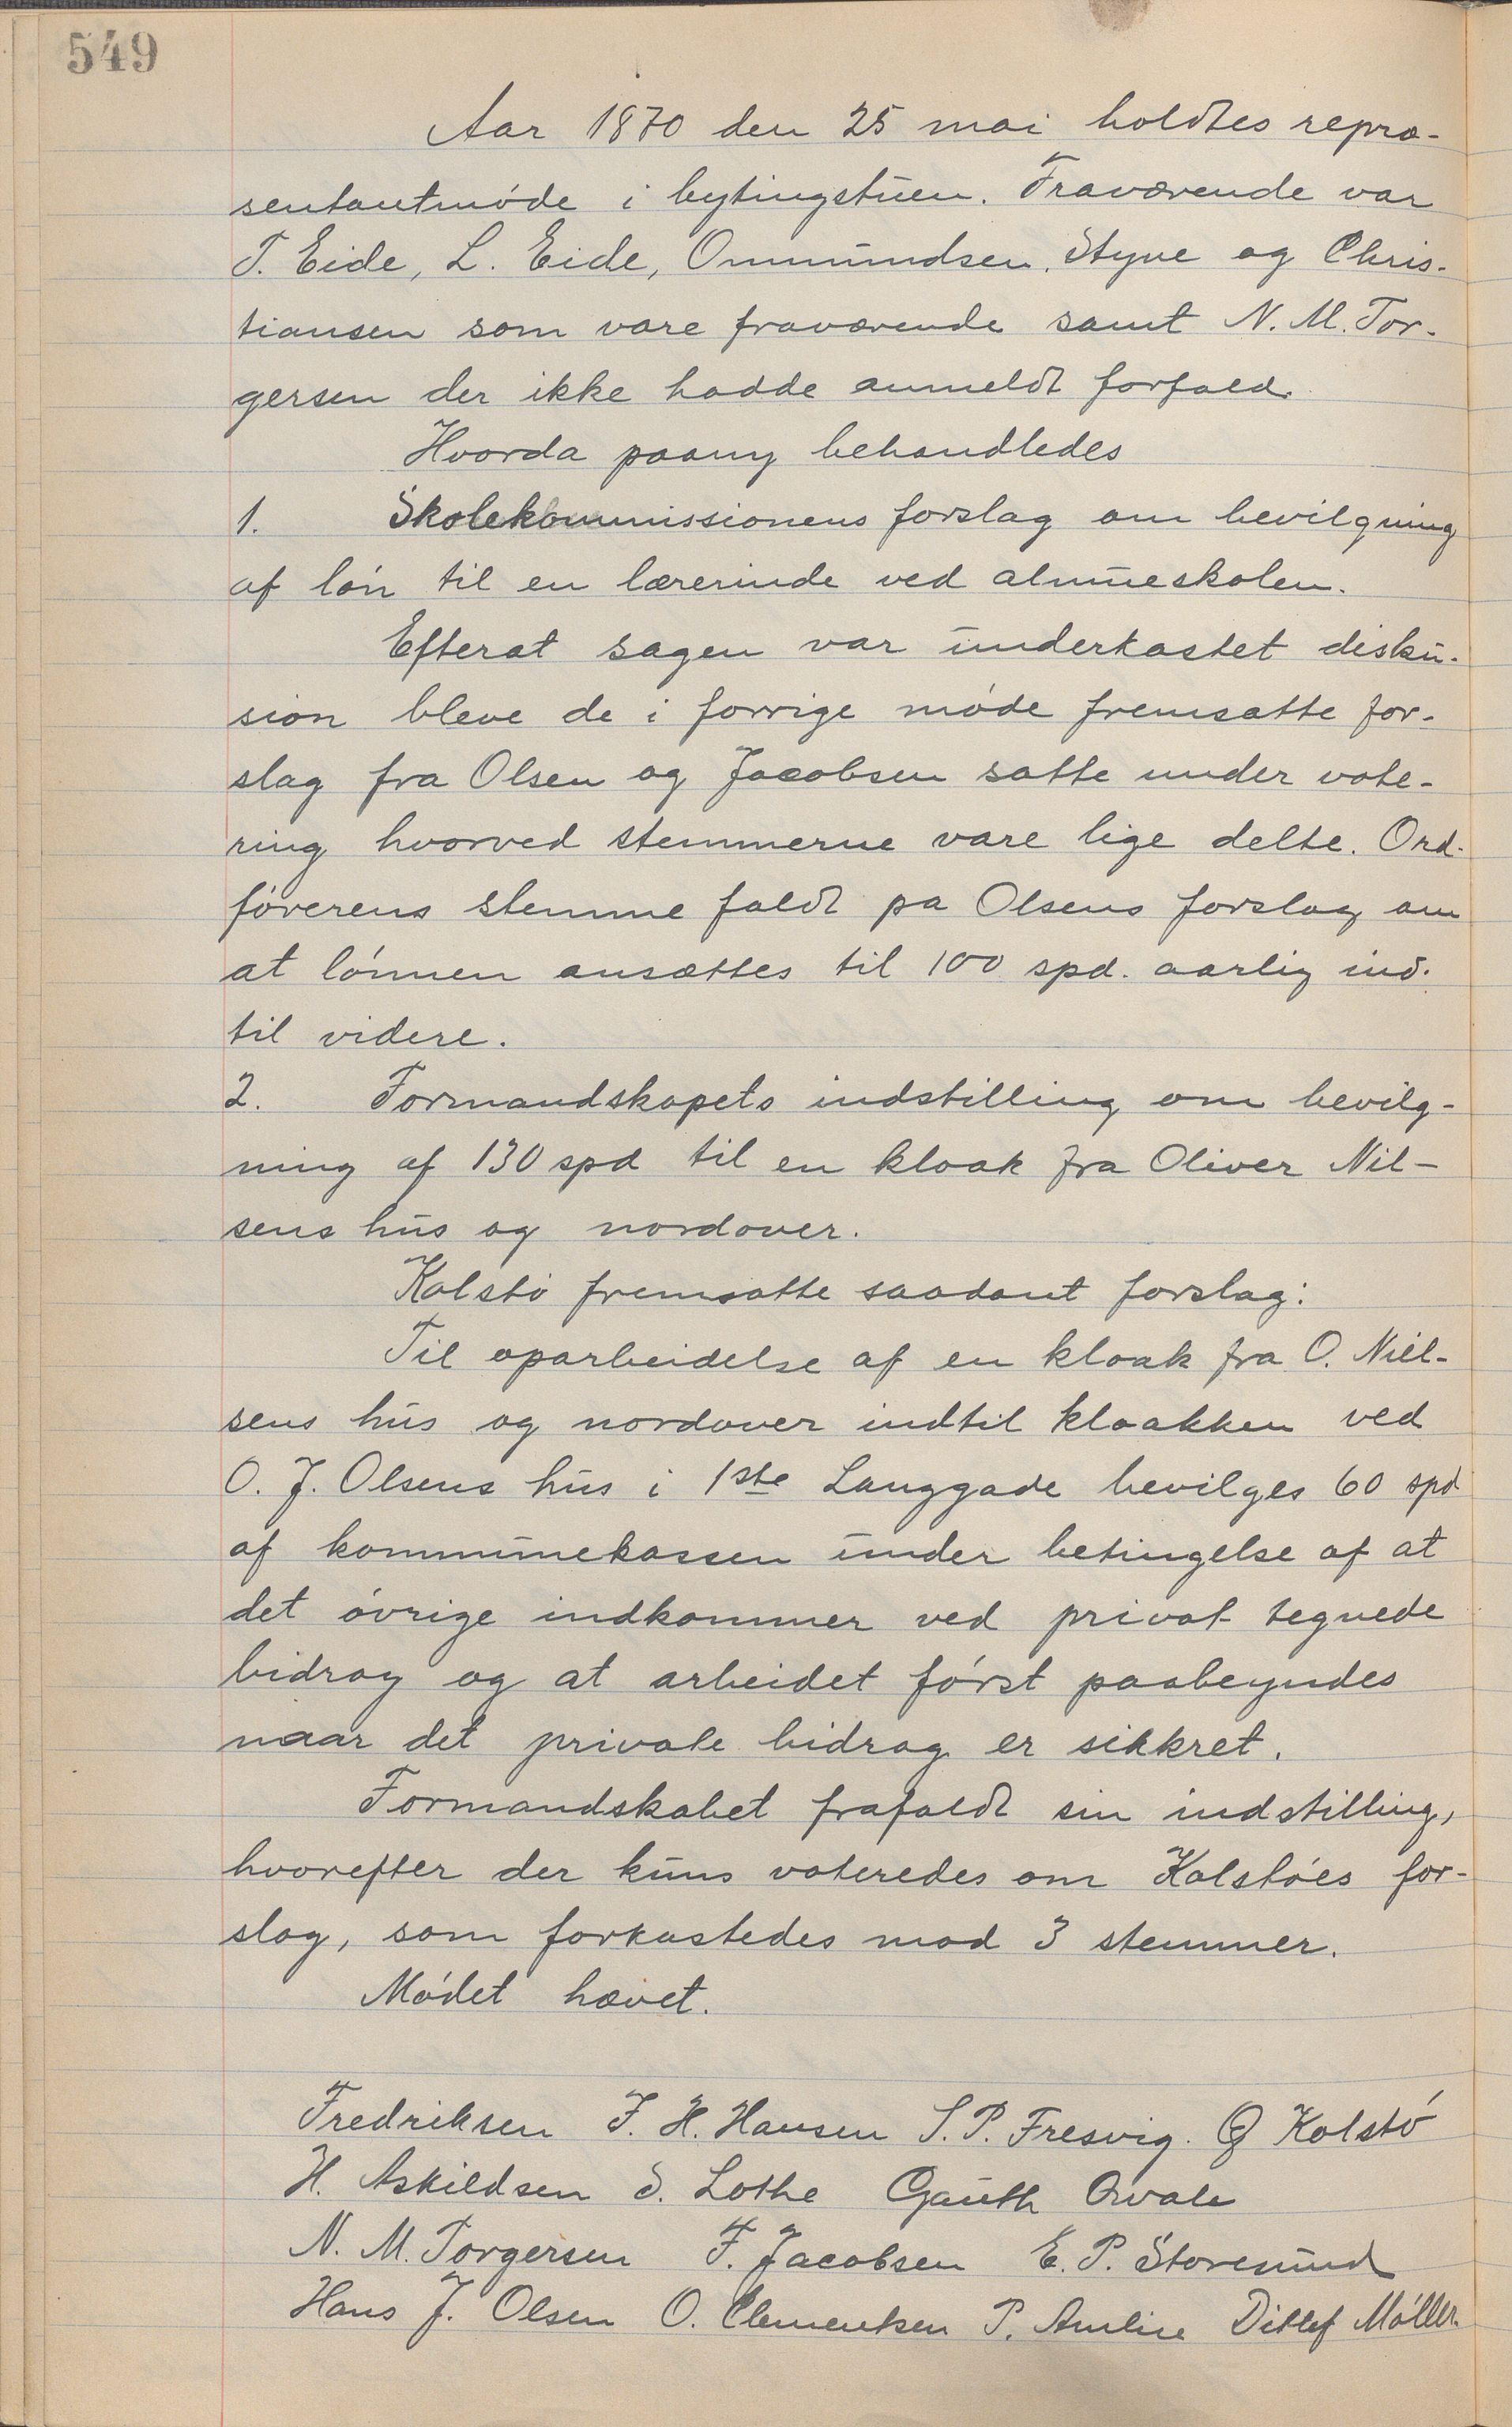 549
Aar 1870 den 25 mai holdtes repræ-
sentantmóde i bytingstuen. Fraværende var
T. Eide, L. Eide, Ommundsen, Styve og Chris-
tiansen som vare fraværende samt N. M. Tor-
gersen der ikke hadde anmeldt forfald.
Hvorda paany behandledes
1. Skolekommissionens forslag om bevilgning
af lón til en lærerinde ved almueskolen.
Efterat sagen var underkastet disku-
sion bleve de i forrige móde fremsatte for-
slag fra Olsen og Jacobsen satte under vote-
ring hvorved stemmerne vare lige delte. Ord-
fórerens stemme faldt pa Olsens forslag om
at lónnen ansættes til 100 spd. aarlig ind-
til videre.
2. Formandskapets indstilling om bevilg-
ning af 130 spd til en kloak fra Oliver Nil-
sens hus og nordover.
Kalstó fremsatte saadant forslag:
Til oparbeidelse af en kloak fra O. Niel-
sens hus og nordover indtil kloakken ved
O. J. Olsens hus i 1ste Langgade bevilges 60 spd
af kommunekassen under betingelse af at
det óvrige indkommer ved privat tegnede
bidrag og at arbeidet fórst paabegyndes
naar det private bidrag er sikkret.
Formandskabet frafaldt sin indstilling,
hvorefter der kuns voteredes om Kalstóes for-
slag, som forkastedes mod 3 stemmer.
Módet hævet.
Fredriksen J. H. Hansen S. P. Fresvig. O Kalstó
H. Askildsen S. Lothe Gauth Qvale
N. M. Torgersen F. Jacobsen E. P. Storesund
Hans J. Olsen O. Clementsen P. Amlie Ditlef Móller.